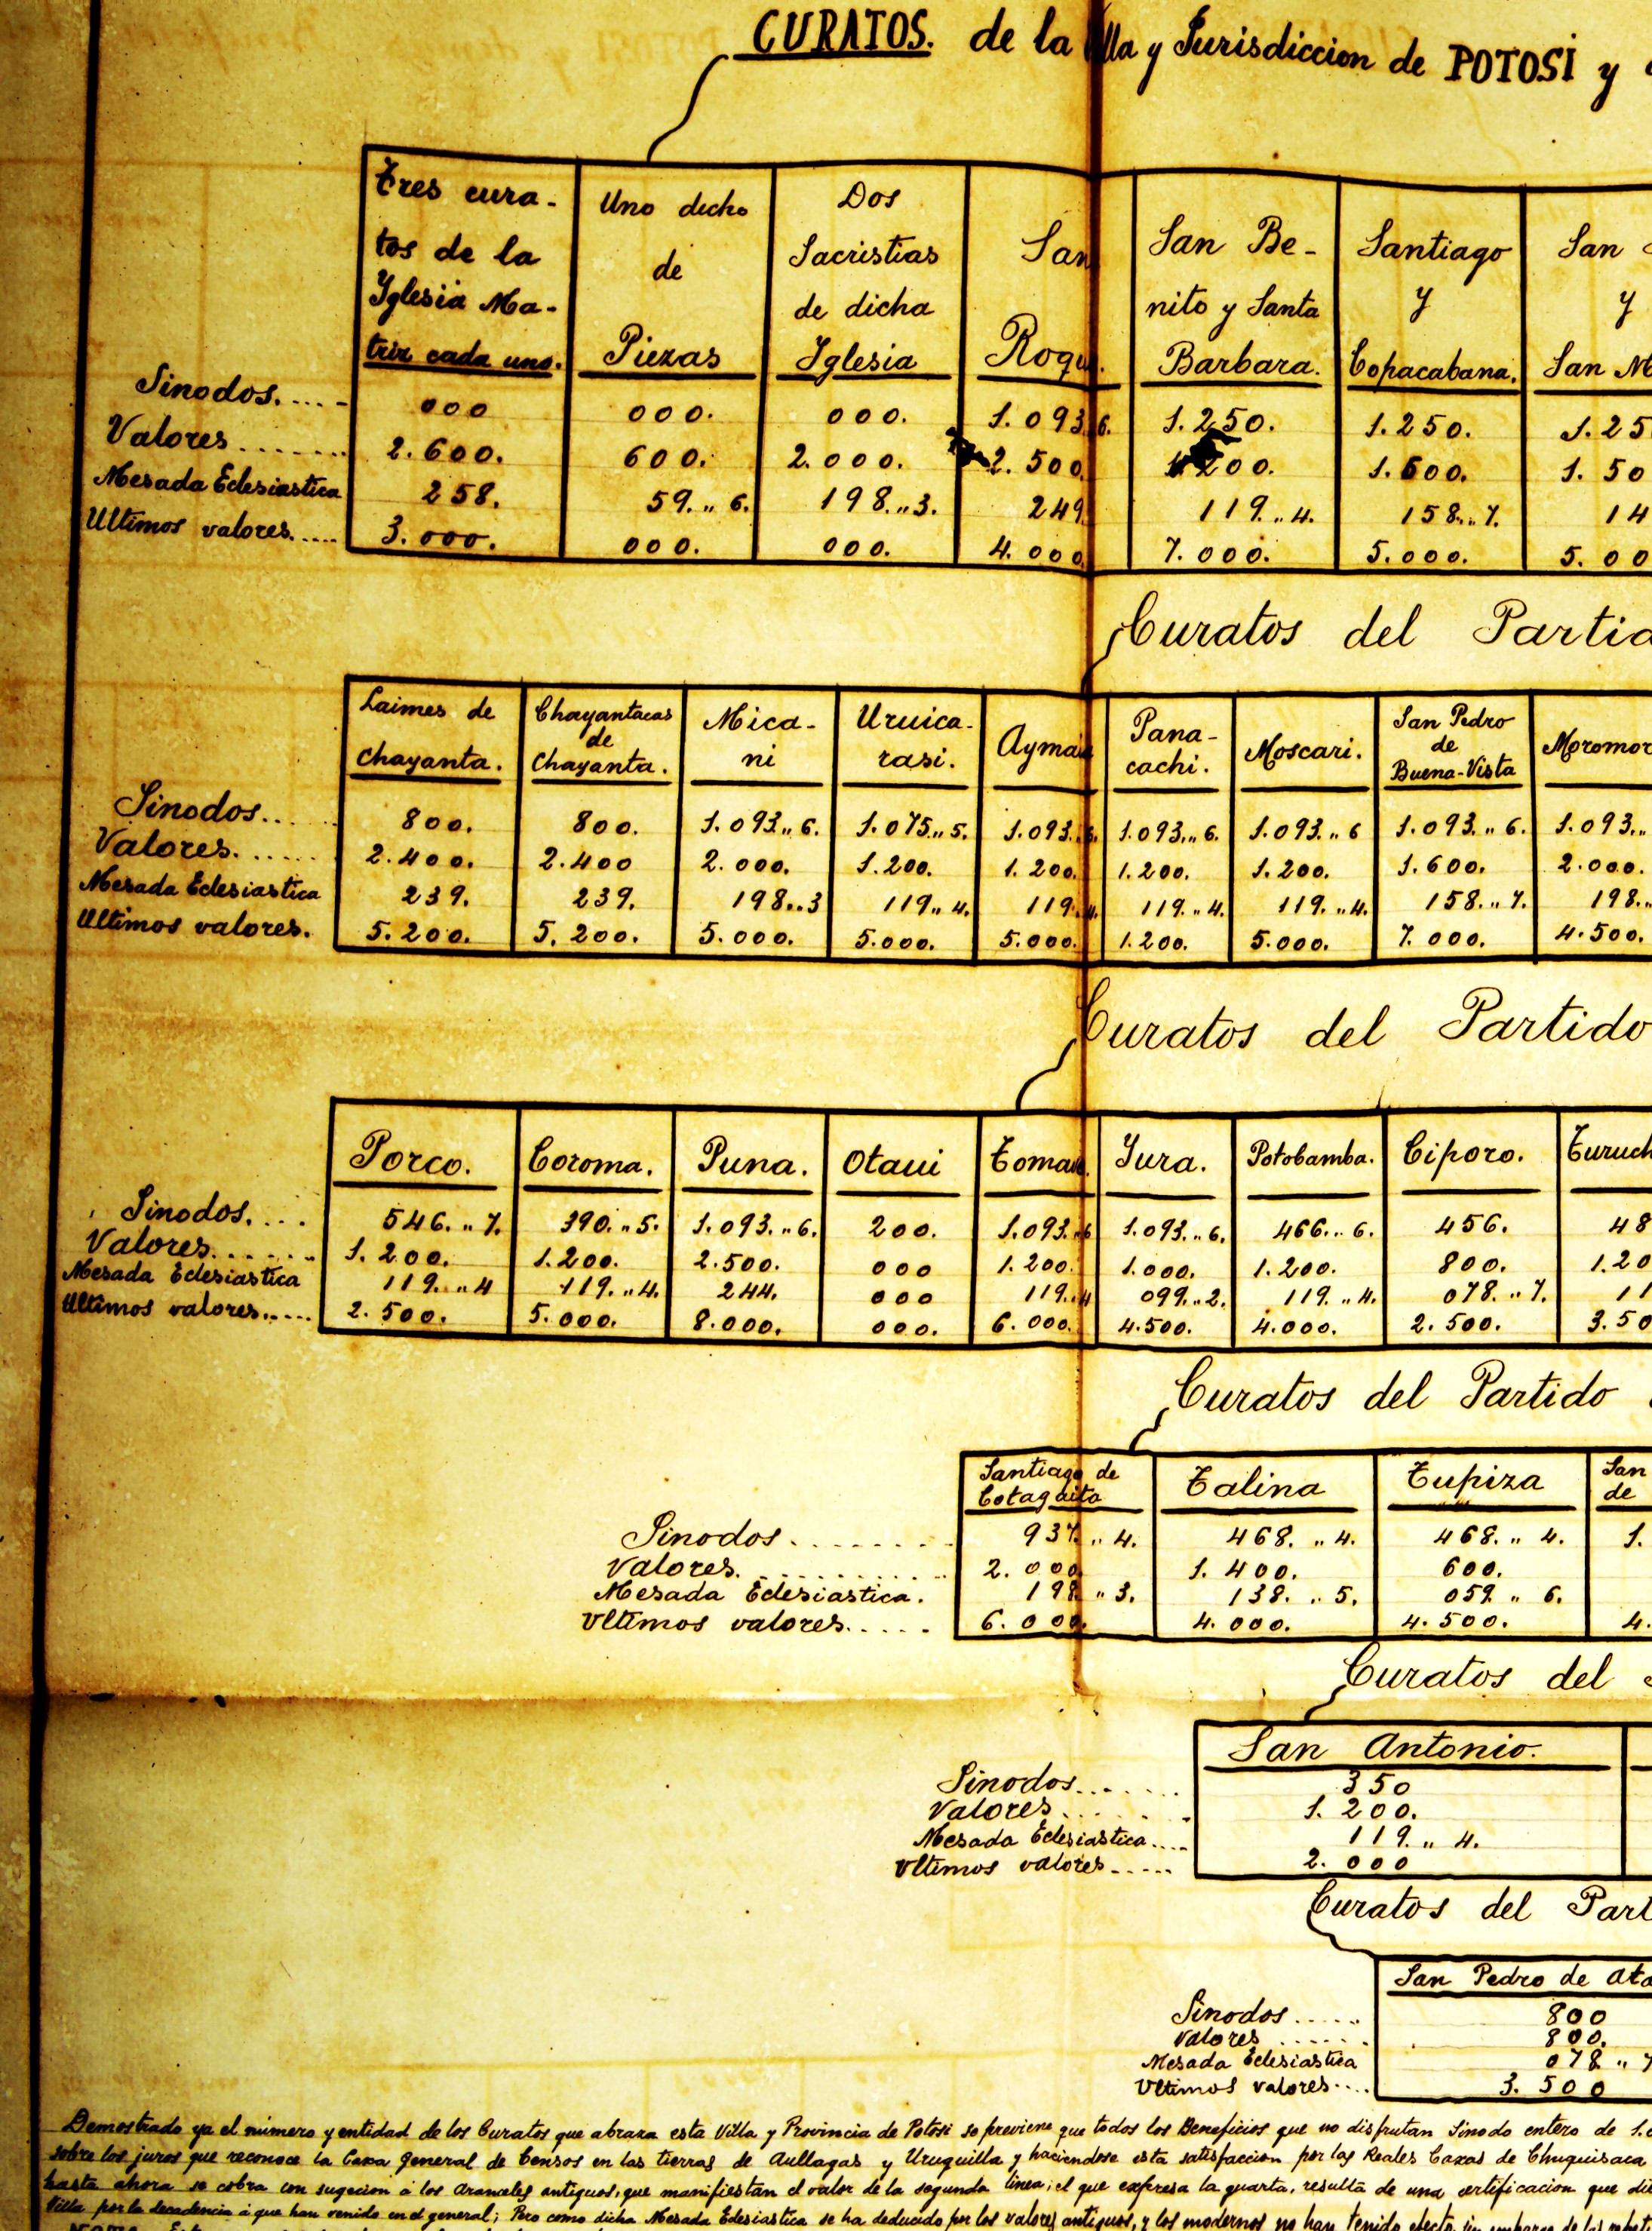 CURATOS. de la Villa y Jurisdiccion de POTOSÍ y
Tres cura- Uno dicho Dos San San Be- Santiago San
tos de la de Sacristias nito y Santa y y
Yglesia Ma- Piezas de dicha Roque. Barbara. Copacabana. San
triz cada uno. Yglesia
Sinodos..... 000 000. 000. 1.093 6. 1.250. 1.250. 1.25
Valores....... 2.600. 600. 2.000. 2.500 200. 1.600. 1.50
Mesada Eclesiastica 258. 59.,,6. 198.,,3. 249 119.,,4. 158.,,7. 14
Ultimos valores..... 3.000. 000. 000. 4.000 7.000. 5.000. 5.00
Curatos del Partid
Laimes de Chayantacas Mica- Uruica- Pana- San Pedro
chayanta. de ni rasi. Aymaia cachi. Moscari. de Moromor
Chayanta. Buena-Vista
Sinodos... 800. 800. 1.093.,,6. 1.075.,,5. 1.093.6. 1.093.,,6. 1.093.,,6 1.093.,,6. 1.093.,,
Valores...... 2.400. 2.400 2.000. 1.200. 1.200. 1.200. 1.200. 1.600. 2.000.
Mesada Eclesiastica 239. 239. 198..3 119,,4. 119.4. 119.,,4. 119.,,4. 158.,,7. 198.,,
Ultimos valores. 5.200. 5.200. 5.000. 5.000. 5.000. 1.200. 5.000. 7.000. 4.500.
Curatos del Partido
Porco. Coroma. Puna. Otaui Tomave. Yura. Potobamba. Ciporo. Turuch
Sinodos.... 546.,,7. 390.,,5. 1.093.,,6. 200. 1.093.,,6 1.093.,,6. 466.,,6. 456. 48
Valores...... 1.200. 1.200. 2.500. 000 1.200. 1.000. 1.200. 800. 1.20
Mesada Eclesiastica 119.,,4 119.,,4. 244. 000 119.,,4 099.,,2. 119.,,4. 078.,,7. 11
Ultimos valores..... 2.500. 5.000. 8.000. 000. 6.000. 4.500. 4.000. 2.500. 3.50
Curatos del Partido
Santiago de Talina Tupiza San
Cotagaita de
Sinodos......... 937.,,4. 468.,,4. 468.,,4. 1.
Valores........... 2.000 1.400. 600.
Mesada Eclesiastica. 198 ,,3. 138.,,5. 059 ,,6.
Vltimos valores..... 6.000. 4.000. 4.500. 4.
Curatos del
San Antonio.
Sinodos...... 350
Valores....... 1.200.
Mesada Eclesiastica.... 119.,,4.
Vltimos valores..... 2.000
Curatos del Part
San Pedro de Ata
Sinodos..... 800
Valores...... 800.
Mesada Eclesiastica 078 ,,7
Vltimos valores.... 3.500
Demostrado ya el número y entidad de los Curatos que abraza esta Villa y Provincia de Potosi se previene que todos los Beneficios que no disfrutan Sinodo entero de 1.
sobre los juros que reconoce la Caxa General de Censos en las tierras de Aullagas y Uruquilla y haciendose esta satisfaccion por las Reales Caxas de Chuquisaca
hasta ahora se cobra con sugecion á los aranceles antiguos, que manifiestan el valor de la segunda linea; el que expresa la quarta, resulta de una certificacion que di
Villa por la decadencia á que han venido en el general; Pero como dicha Mesada Eclesiastica se ha deducido por los valores antiguos, y los modernos no han tenido efecto